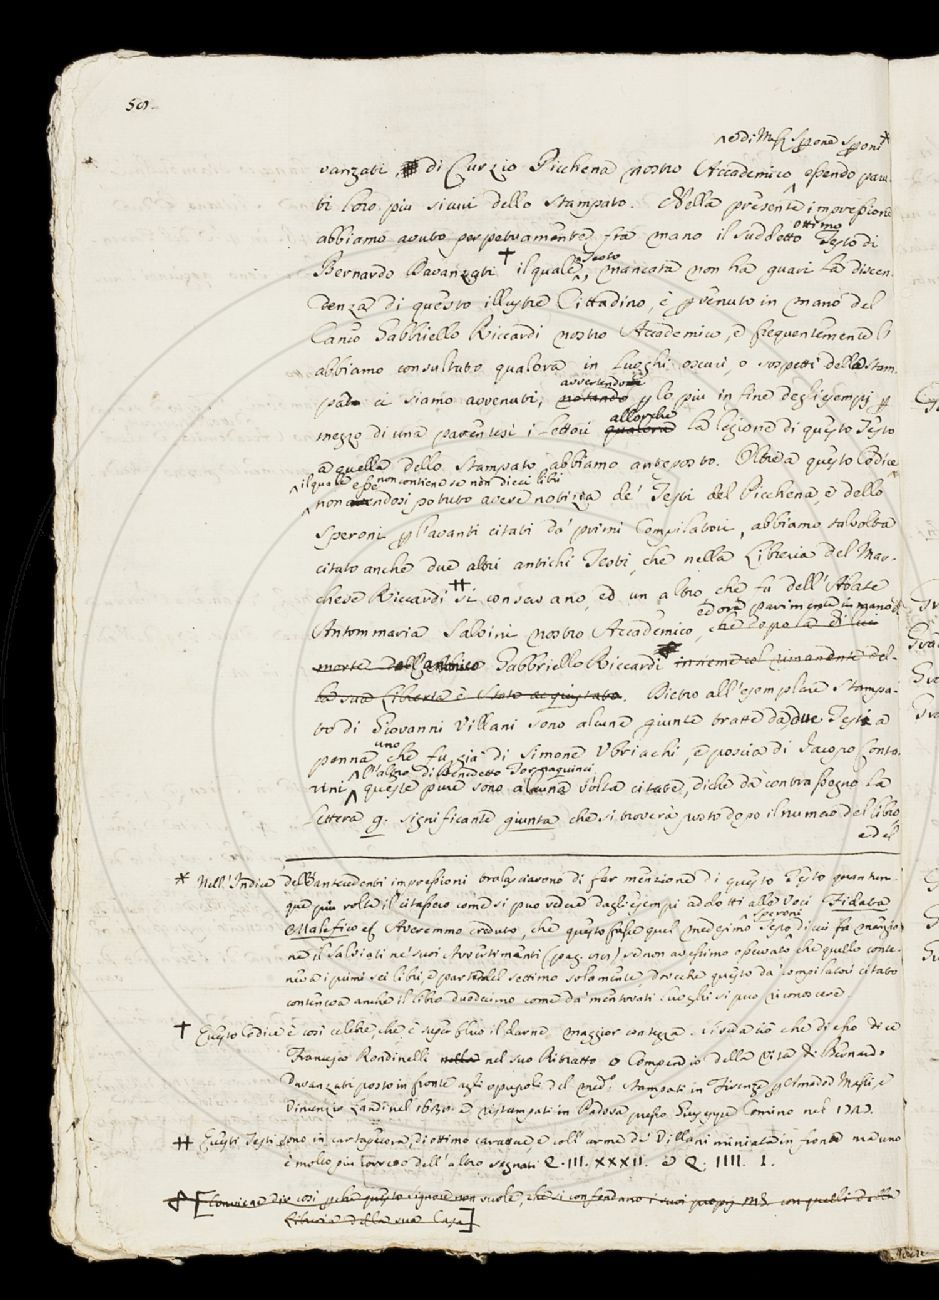 ^ e di M. Sperone Speroni *
vanzati di Curzio Picchena nostro Accademico ^ essendo paru-
ti loro piu sicuri dello Stampato. Nella presente impressione
ottimo
abbiamo avuto perpetuamente fra mano il suddetto Testo di
Testo
Bernardo Davanzati † il quale, ^ mancata non ha guari la discen-
denza di questo illustre Cittadino, è pervenuto in mano del
Canco Gabbriello Riccardi nostro Accademico, e frequentemente l'
abbiamo consultato qualora in luoghi oscuri o sospetti dello Stam-
avvertendone
pato ci siamo avvenuti, notando per lo piu in fine degli esempj per
allorche
mezzo di una parentesi i Lettori qualora la lezione di questo Testo
a quella dello Stampato abbiamo anteposto. Oltre a questo Codice ^
^ il quale non contiene se non dieci libri
non essendosi potuto avere notizia de' Testi del Picchena, e dello
Speroni per l'avanti citati da' primi Compilatori, abbiamo talvolta
citato anche due altri antichi Testi, che nella Libreria del Mar-
chese Riccardi ‡ si conservano, ed un altro, che fu dell'Abate
ed ora parimente in mano di
Antommaria Salvini nostro Accademico, che dopo la di lui
morte dall' Gabbriello Riccardi insieme col rimanente del-
la sua Libreria è stato acquistato. Dietro all'esemplare Stampa-
to di Giovanni Villani sono alcune giunte tratte da due Testi a
uno
penna che fu già di Simone Ubriachi, e poscia di Jacopo Conta-
^ l'altro di Benedetto Tornaquinci
rini ^ queste pure sono alcuna volta citate, di che dà contrassegno la
Lettera g. significante giunta che si troverà posto dopo il numero del libro
e del
* Nell'Indice dell'antecedenti impressioni tralasciarono di far menzione di questo Testo quantun-
que piu volte il citassero come si puo vedere dagli esempi addotti alle voci Fidata
Speroni
Malefico ec. Averemmo creduto, che questo fosse quel medesimo ^ Testo di cui fa menzio-
ne il Salviati ne' suoi Avvertimenti (pag. ) se non avessimo osservato che quello conte-
neva i primi sei libri, e parte del settimo solamente, dovecche questo da' Compilatori citato
conteneva anche il libro duodecimo come da' mentovati luoghi si puo riconoscere.
† Questo Codice è cosi celebre che è superfluo il darne maggior contezza. Si veda ciò che di esso dice
Francesco Rondinelli nella nel suo Ritratto o Compendio della Vita di Bernardo
Davanzati posto in fronte agli opuscoli del med. Stampati in Firenze per Amador Massi, e
Lorenzo Landi nel 1638. e ristampati in Padova presso Giuseppe Comino nel 1727.
‡ Questi Testi sono in cartapecora, di ottimo carattere, e coll'arme de' Villani miniata in fronte ma uno
è molto piu corretto dell'altro segnati Q. III. XXXII. e Q. IIII. I.
[Conviene dir cosi perche questo signore non vuole, che si confondano i suoi propj MS. con quelli della
Libreria della sua Casa]